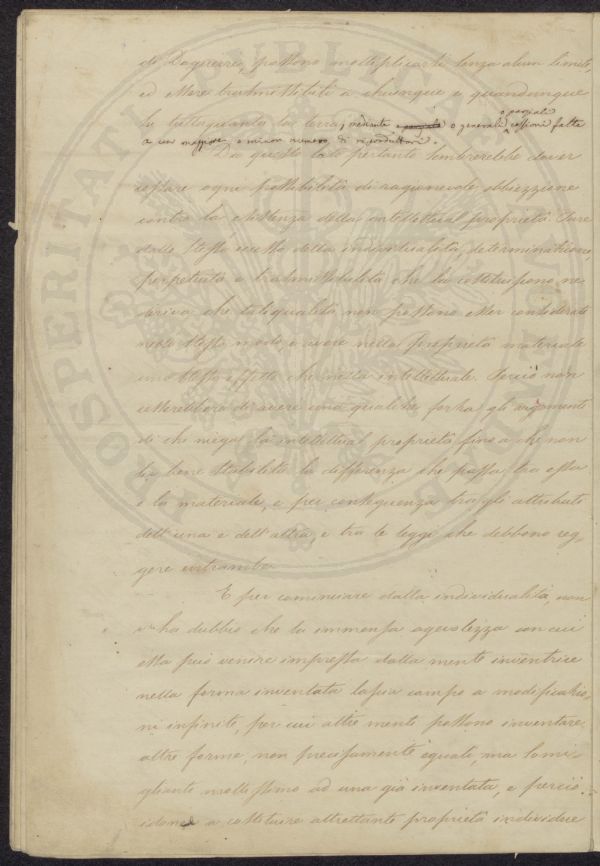 di Daguerre, possono moltiplicarsi senza alcun limite,
ed essere trasmissibili a chiunque e quandunque
su tuttaquanta la terra, mediante o generali o parziali cessioni fatte
a un maggiore o minor numero di riproduttori.
Da questo lato pertanto sembrerebbe dover
cessare ogni possibilità di ragionevole obbiezzione
contro la esistenza della intellettual proprietà. Pure
dallo stesso eccesso della individualità, determinazione,
perpetuità e trasmissibilità che la costituiscono ne
deriva che tali qualità non possono esser considerate
nello stesso modo, e avere nella proprietà materiale
uno stesso effetto che nella intellettuale. Perciò non
cesserebbero di avere una qualche forza gli argomenti
di chi niega la intellettual proprietà fino a che non
sia bene stabilita la differenza che passa tra essa
e la materiale, e per conseguenza tra gli attributi
dell'una e dell'altra, e tra le leggi che debbono reg-
gere entrambe.
E per cominciare dalla individualità, non
v'ha dubbio che la immensa agevolezza con cui
essa può venire impressa dalla mente inventrice
nella forma inventata lascia campo a modificazio-
ni infinite, per cui altre menti possono inventare
altre forme, non precisamente eguali, ma somi-
gliante moltissimo ad una già inventata, e perciò
idonee a costituire altrettante proprietà individue
PROSPERITATI PUBLICAE